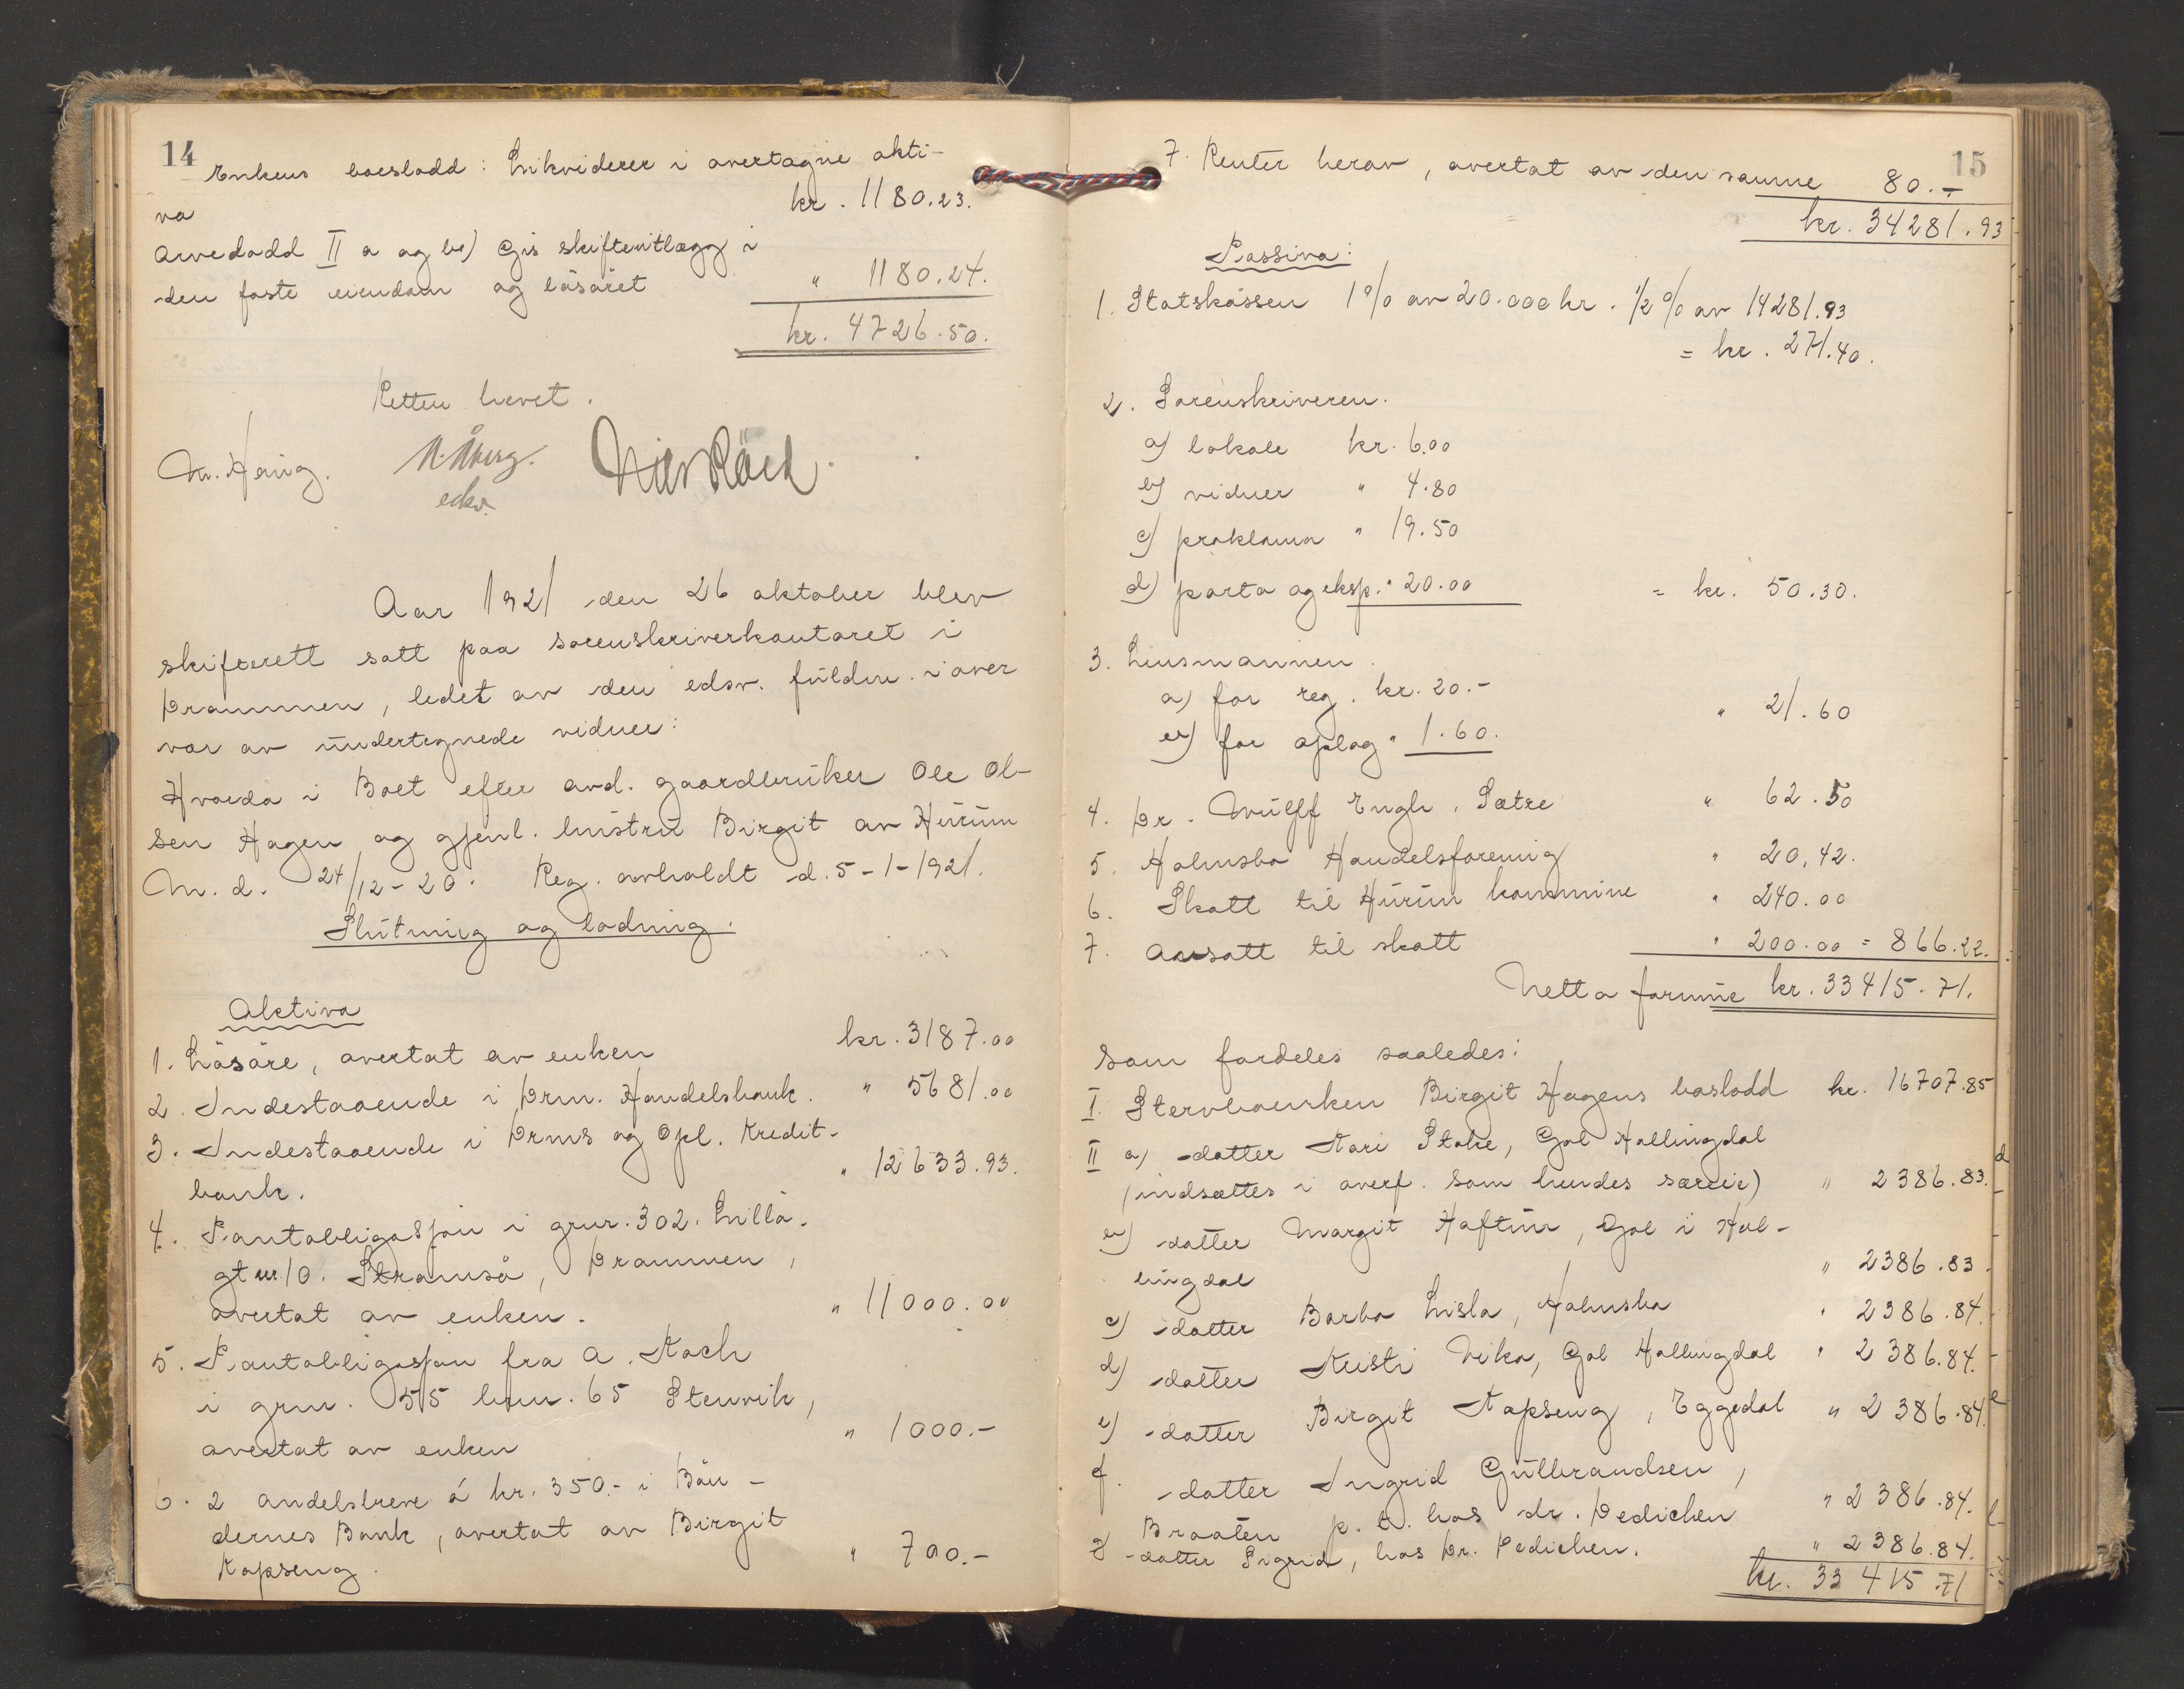 14
Enkens boeslodd: Likviderer i overtagne akti-
va kr. 1180.23.
Arvedodd II a og b) Gis skifteutlægg i
den faste eiendom og løsøret " 1180.24.
kr. 4726.50.
Retten hevet.
M. Haug. N. Åberg.
edsv.
Aar 1921 den 26 oktober blev
skifterett satt paa sorenskriverkontoret i
Drammen, ledet av den edsv. fuldm. i over
vær av undertegnede vidner:
Hvorda i Boet efter avd. gaardbruker Ole Ol-
sen Hagen og gjenl. hustru Birgit av Hurum
M. d. 24/12-20. Reg. avholdt d. 5-1-1921.
Slutning og lodning.
Aktiva
1. Løsøre, overtat av enken kr. 3187.00
2. Indestaaende i Drm. Handelsbank. " 5681.00
3. Indestaaende i Drms og Opl. Kredit-
bank. " 12633.93.
4. Pantobligasjon i grnr. 302. Lillö.
gt nr 10. Strømsø, Drammen,
overtat av enken. " 11000.00
5. Pantobligasjon fra A. Koch
i grn. 55 brn. 65 Stenvik,
overtat av enken " 1000.-
6. 2 andelsbreve á kr. 350.- i Bøn-
dernes Bank, overtat av Birgit
Kopseng. " 700.-
15
7. Renter herav, overtat av den samme 80.-
kr. 34281.93
Passiva:
1. Statskassen 1% av 20.000 kr. 1/2% av 14281.93
= kr. 271.40.
2. Sorenskriveren.
a) lokale kr. 6.00
b) vidner " 4.80
c) proklama " 19.50
d) porto og eksp. " 20.00 = kr. 50.30.
3. Lensmannen.
a) for reg. kr. 20.-
b) for oplag " 1.60. " 21.60
4. Dr. Wulff Engh. Sætre " 62.50
5. Holmsbo Handelsforening " 20,42.
6. Skatt til Hurum kommune " 240.00
7. Ansatt til skatt " 200.00 = 866.22.
Netto formue kr. 33415.71.
som fordeles saaledes:
I. Stervboenken Birgit Hagens boslodd kr. 16707.85
II a) datter Kari Stake, Gol Hallingdal
(indsættes i overf. som hendes særeie) " 2386.83.
b) datter Margit Haftun, Gol i Hal-
lingdal " 2386.83.
c) datter Barbo Lisla, Holmsbo " 2386.84.
d) datter Kristi Vika, Gol Hallingdal " 2386.84.
e) datter Birgit Kopseng, Eggedal " 2386.84.
f. datter Ingrid Gulbrandsen,
Braaten p. t. hos dr. Dedichen " 2386.84.
g) datter Sigrid, hos Dr. Dedichen. " 2386.84.
kr. 33415.71